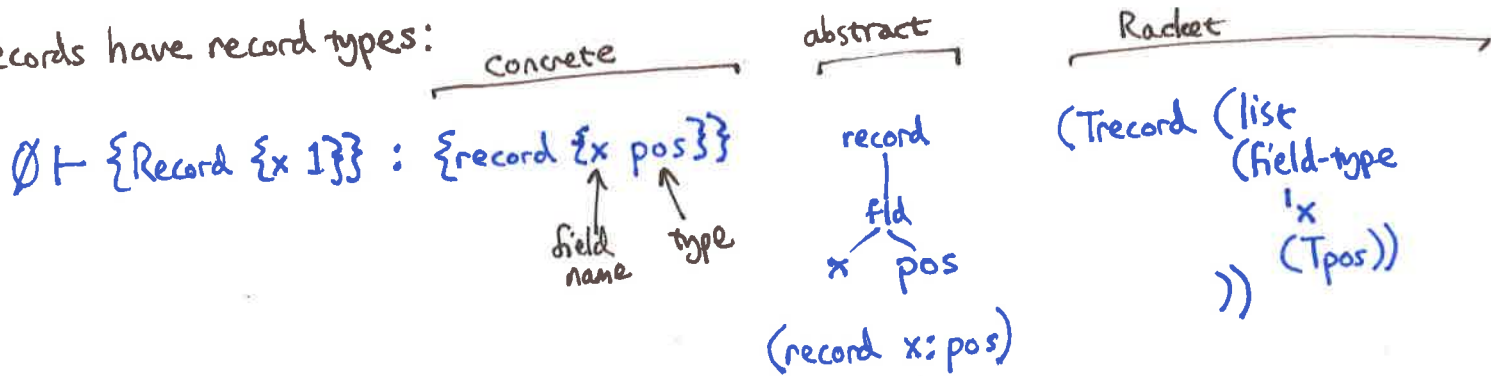 ecords have record types:
concrete
abstract
Racket
∅ ⊢ {Record {x 1}} : {record {x pos}}
field name
type
record
fld
x pos
(record x: pos)
(Trecord (list
(field-type
'x
(Tpos))
))